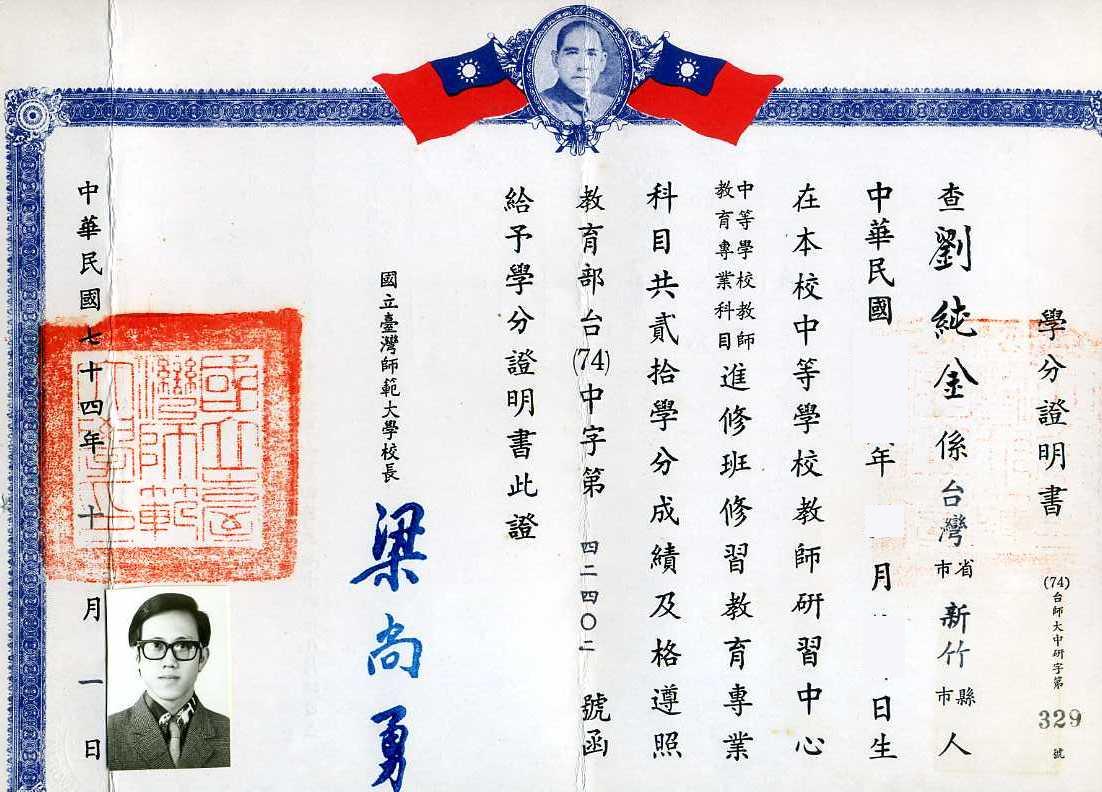 學分證明書
(74)台師大中研字第329號
查劉純金係台灣省市新竹縣市人
中華民國 年 月 日生
在本校中等學校教師研習中心
中等學校教師
教育專業科目
進修班修習教育專業
科目共貳拾學分成績及格遵照
教育部台(74)中字第四二四〇二號函
給予學分證明書此證
國立臺灣師範大學校長
梁尚勇
中華民國七十四年十月一日